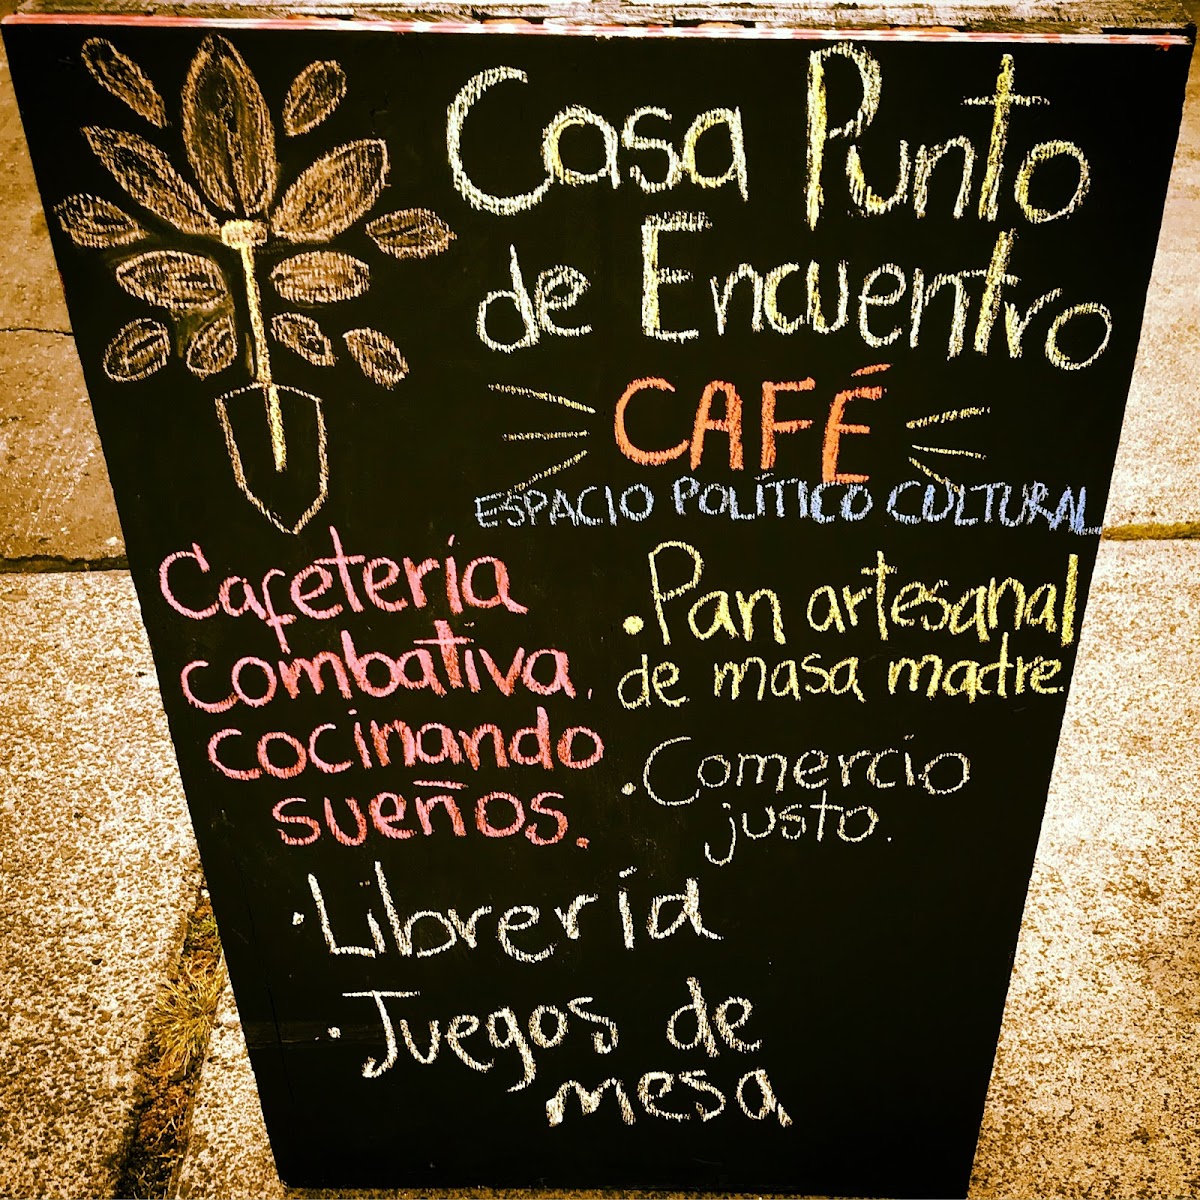 Casa Punto
de Encuentro
CAFÉ
ESPACIO POLÍTICO CULTURAL
Cafetería
combativa.
cocinando
sueños.
• Pan artesanal
de masa madre.
• Comercio
justo.
• Librería
• Juegos de
mesa